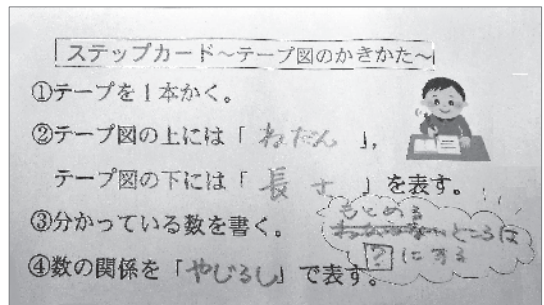 ステップカード～テープ図のかきかた～
①テープを1本かく。
②テープ図の上には「ねだん」,
テープ図の下には「長さ」を表す。
③分かっている数を書く。
④数の関係を「やじるし」で表す。
もとめる
わからないところは
?にする